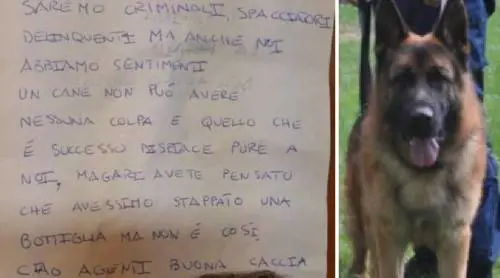 SAREMO CRIMINALI, SPACCIATORI
DELINQUENTI MA ANCHE NOI
ABBIAMO SENTIMENTI
UN CANE NON PUÓ AVERE
NESSUNA COLPA E QUELLO CHE
É SUCCESSO DISPIACE PURE A
NOI, MAGARI AVETE PENSATO
CHE AVESSIMO STAPPATO UNA
BOTTIGLIA MA NON É COSÍ,
CIAO AGENTI BUONA CACCIA